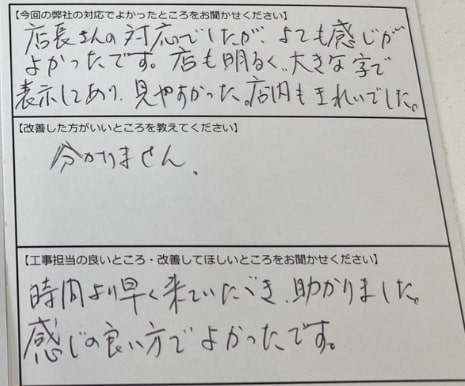 【今回の弊社の対応でよかったところをお聞かせください】
店長さんの対応でしたが、とても感じが
よかったです。店も明るく、大きな字で
表示してあり、見やすかった。店内もきれいでした。
【改善した方がいいところを教えてください】
分かりません、
【工事担当の良いところ・改善してほしいところをお聞かせください】
時間より早く来ていただき、助かりました。
感じの良い方でよかったです。